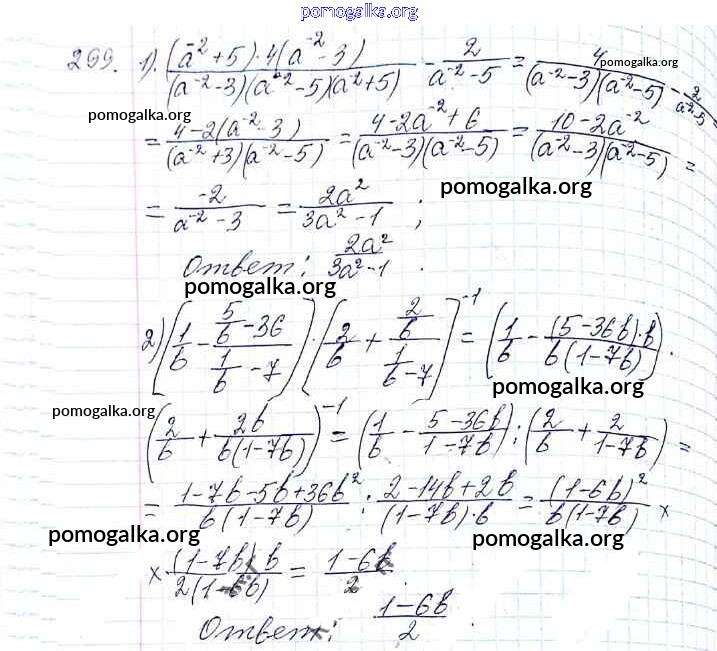 pomogalka.org
299. 1). (a⁻²+5)·4(a⁻²-3) / (a⁻²-3)(a⁻²-5)(a⁻²+5) - 2 / a⁻²-5 = 4 / (a⁻²-3)(a⁻²-5) - 2 / a⁻²-5 =
pomogalka.org
pomogalka.org
= 4-2(a⁻²-3) / (a⁻²+3)(a⁻²-5) = 4-2a⁻²+6 / (a⁻²-3)(a⁻²-5) = 10-2a⁻² / (a⁻²-3)(a⁻²-5) =
pomogalka.org
= -2 / a⁻²-3 = 2a² / 3a²-1 ;
Ответ: 2a² / 3a²-1 .
pomogalka.org
2) [1/b - (5/b - 36) / (1/b - 7)] · [2/b + (2/b) / (1/b - 7)]⁻¹ = (1/b - (5-36b)·b / b(1-7b)) ·
pomogalka.org
pomogalka.org
(2/b + 2b / b(1-7b))⁻¹ = (1/b - 5-36b / 1-7b) : (2/b + 2 / 1-7b) =
= 1-7b-5b+36b² / b(1-7b) : 2-14b+2b / (1-7b)·b = (1-6b)² / b(1-7b) ×
pomogalka.org
pomogalka.org
× (1-7b) b / 2(1-6b) = 1-6b / 2
Ответ: 1-6b / 2 .